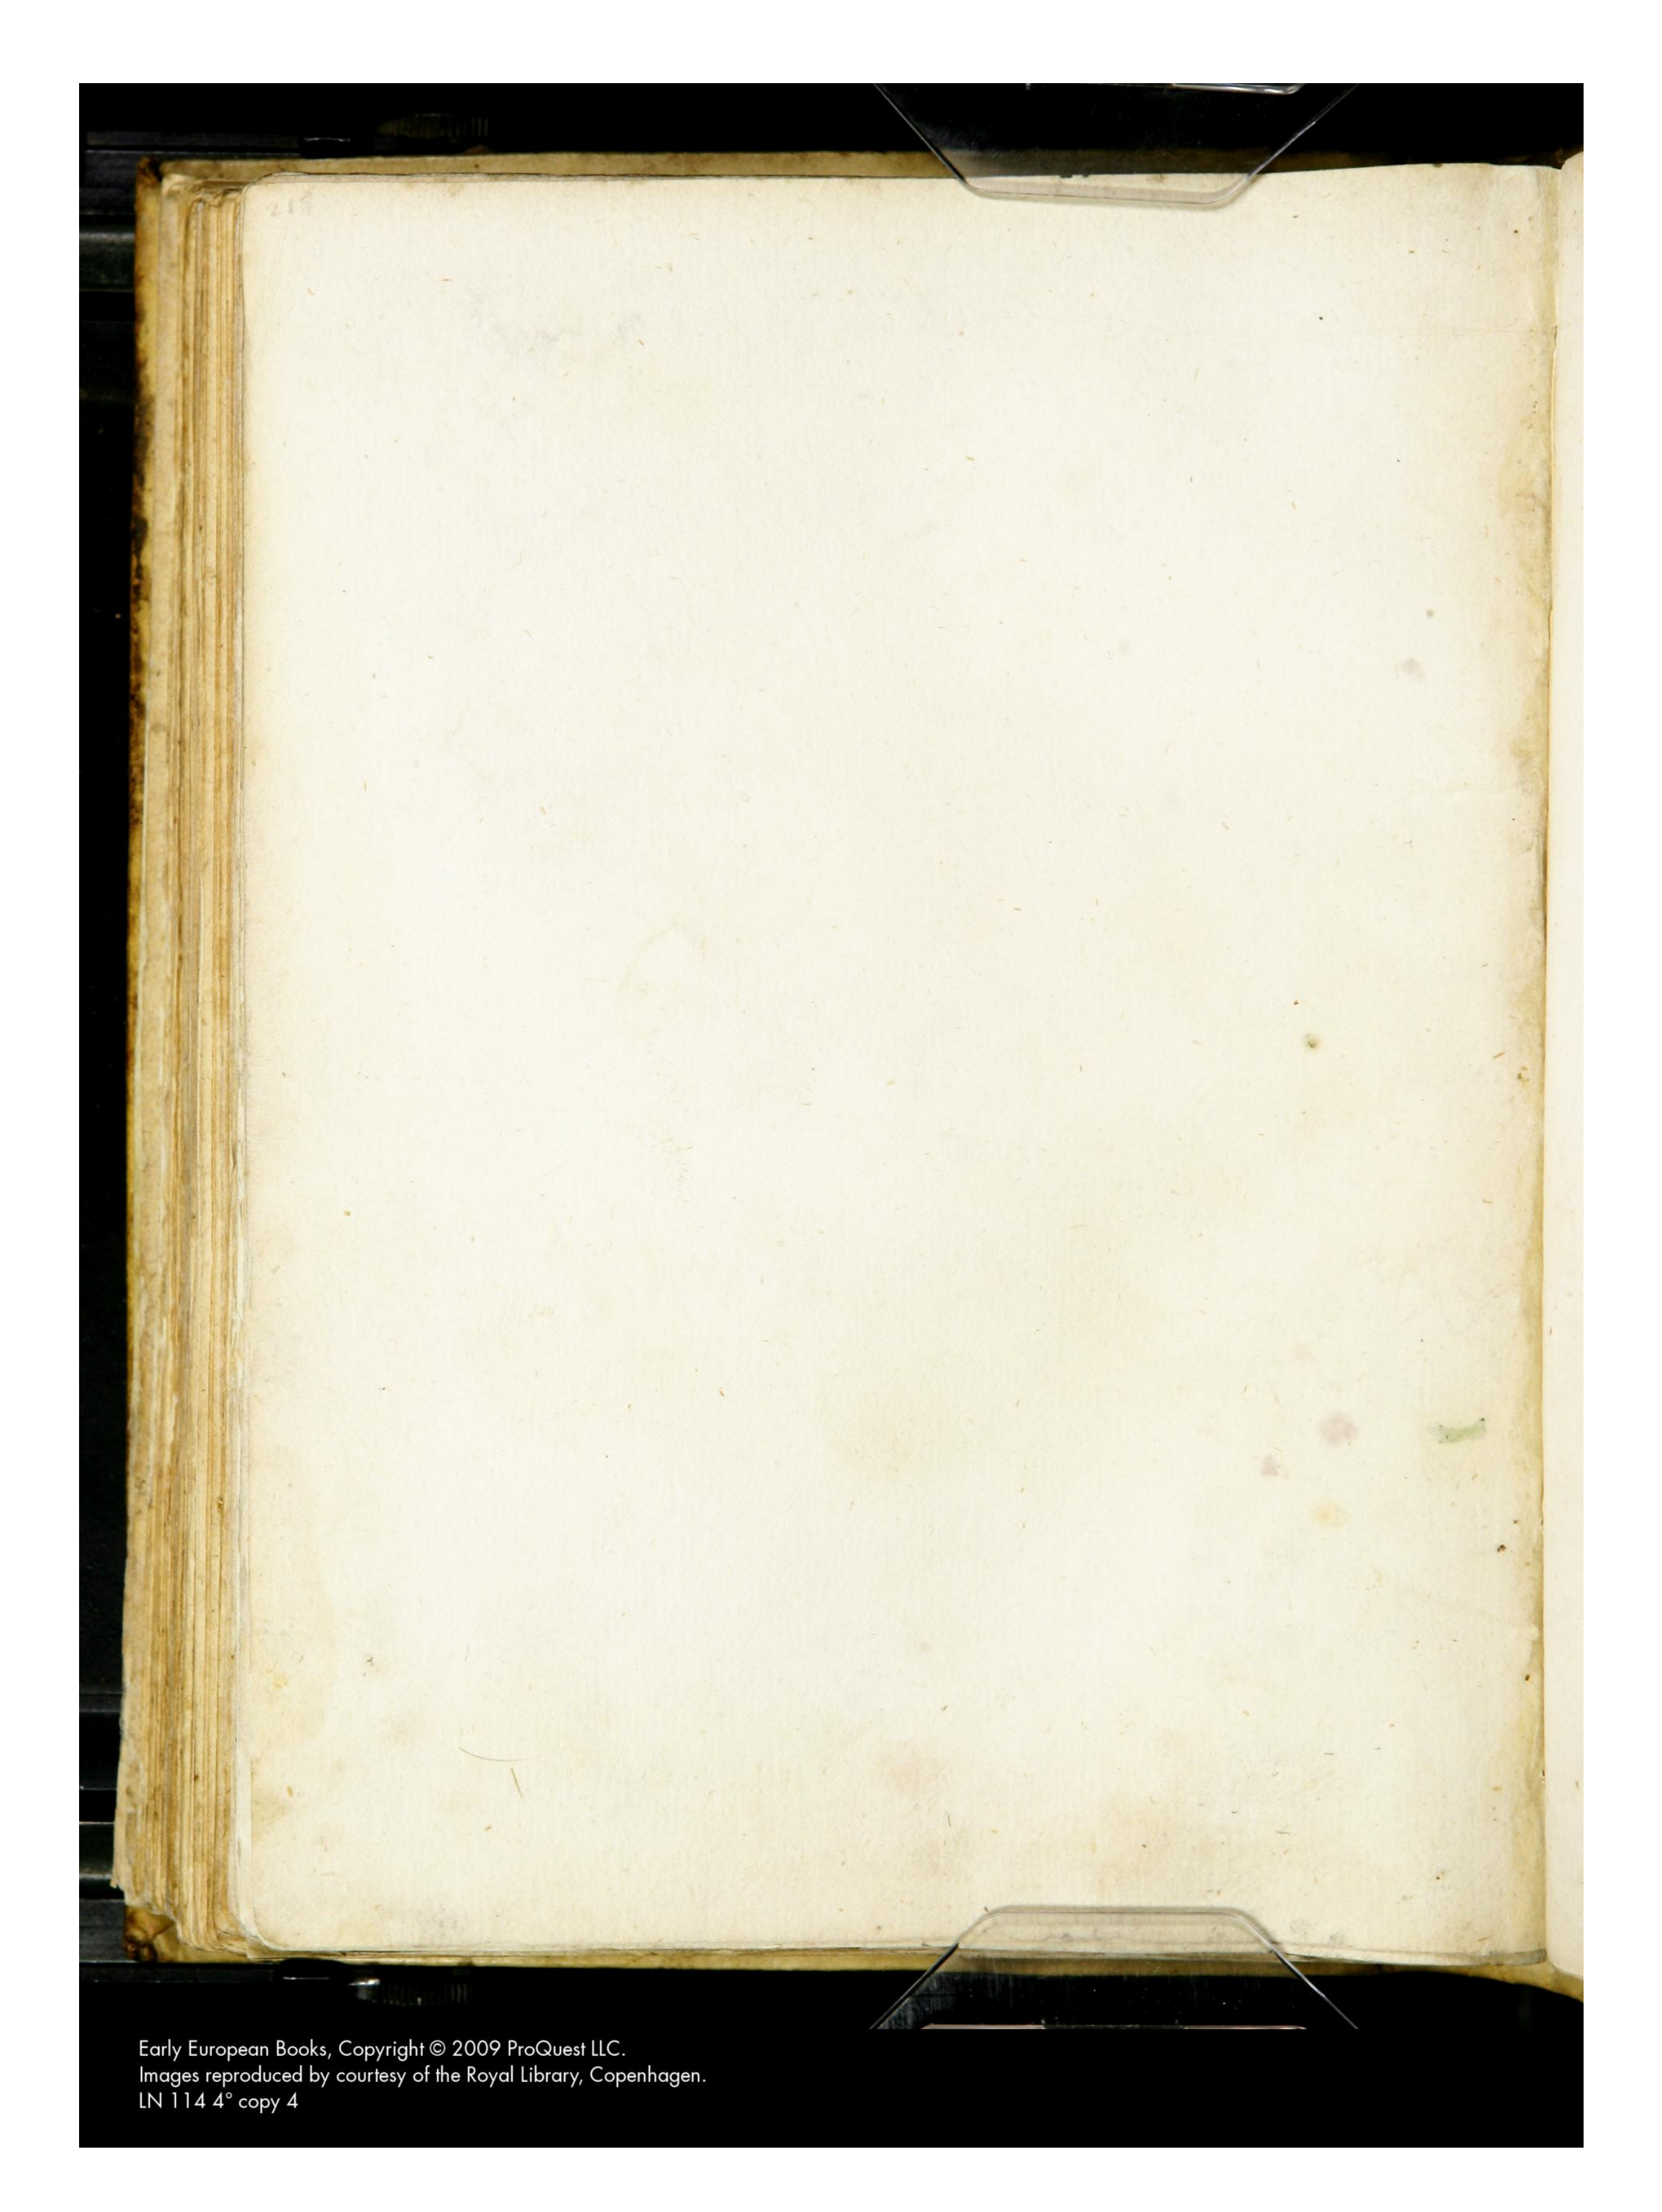 Early European Books, Copyright © 2009 ProQuest LLC.
Images reproduced by courtesy of the Royal Library, Copenhagen.
LN 114 4° copy 4